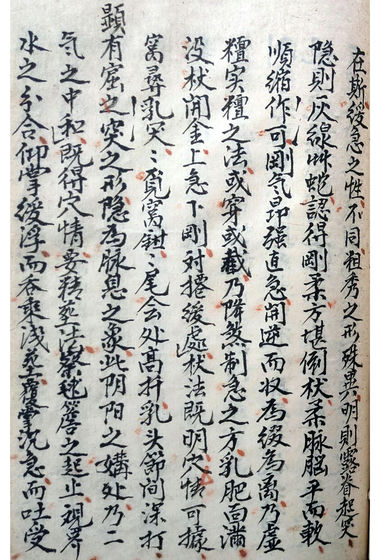 在斯緩急之性不同粗秀之形殊異明則露脊起突
隐則灰線艸蛇認得剛柔方堪倒杖柔脉腦平而軟
順縮作可剛氣昂强直急開避而状為缀為离乃虚
粗实粗之法或穿或截乃降煞制急之方乳肥面满
没杖開金上急下剛对撞後處杖法既明穴情可據
窩尋乳突突覓窩鉗鉗尾会处高扦乳头節间深打
顕有窟之突之形隐為脉息之象此阴阳之媾处乃二
气之中和既得穴情要精葬法察毬簷之起止視界
水之分合仰掌缓浮而吞乘浅葬覆掌沉急而吐受